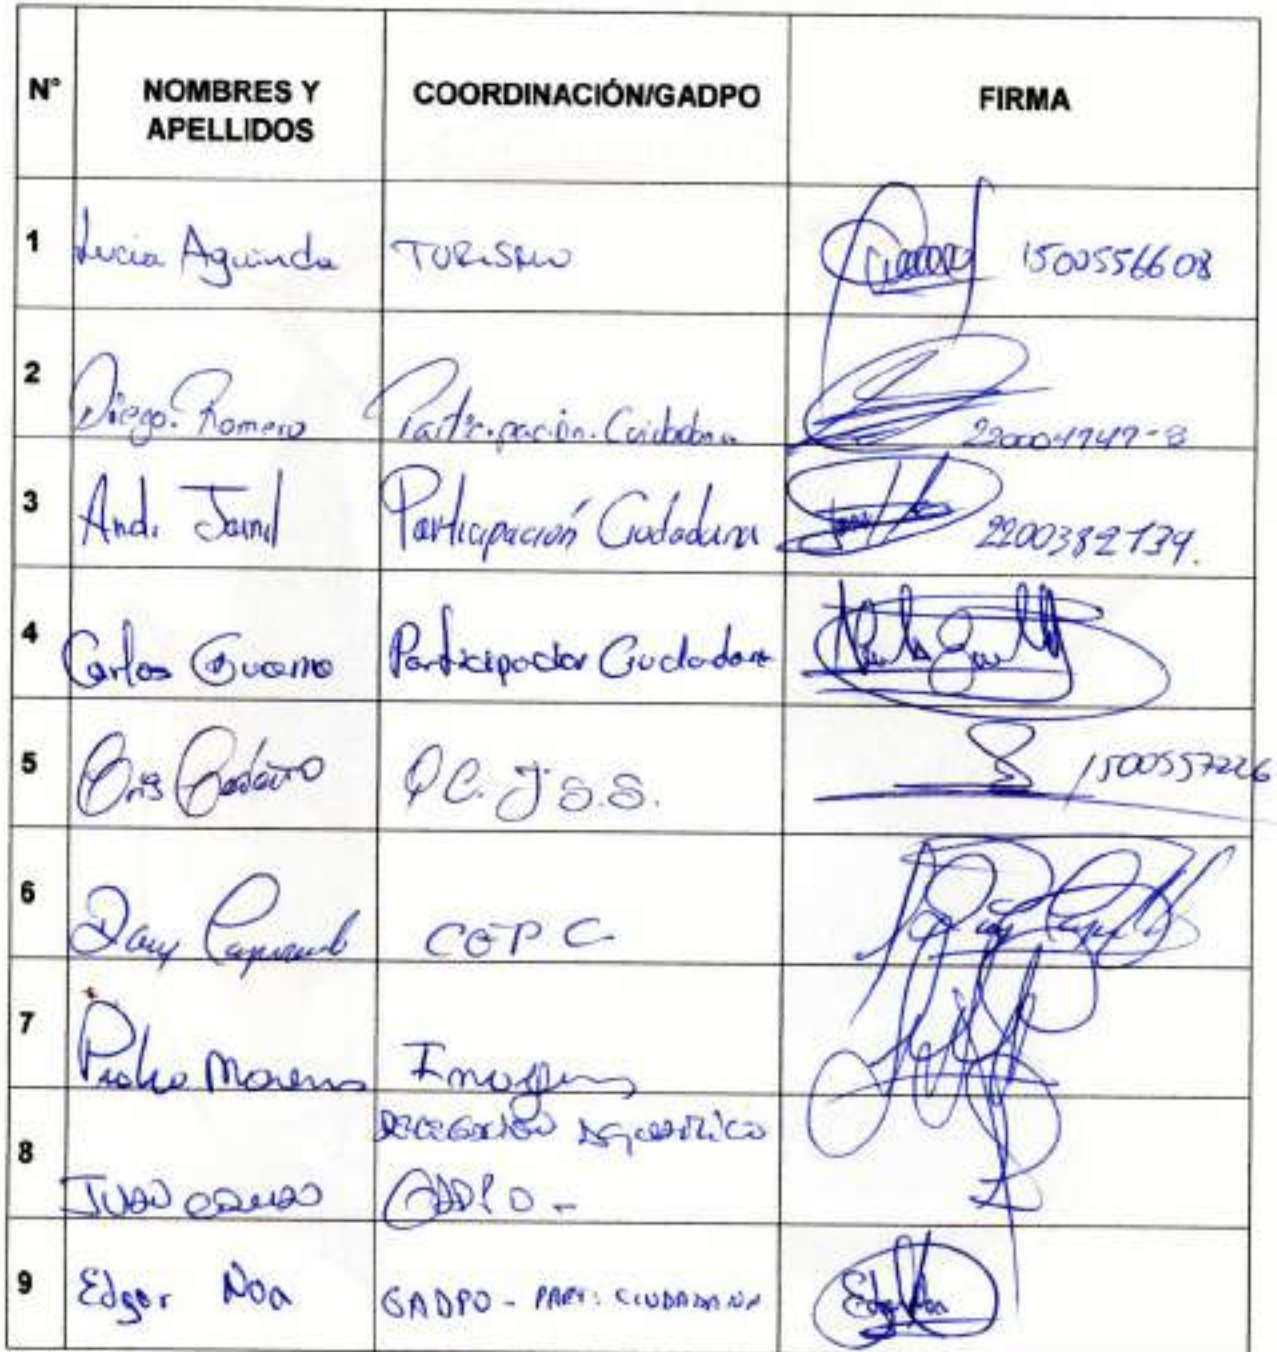 N° NOMBRES Y APELLIDOS COORDINACIÓN/GADPO FIRMA
1 Lucia Aguinda TURISMO 1500556608
2 Diego. Romero Participación. Ciudadana 220004747-8
3 Andi Jamil Participación Ciudadana 2200382134.
4 Carlos Participacion Ciudadana
5 P.C. J S.S. 1500557226
6 Dany CGPC
7 Pedro Moreno Imagen
8 JUAN GADPO -
9 Edgar Noa GADPO - PART: CIUDADANA